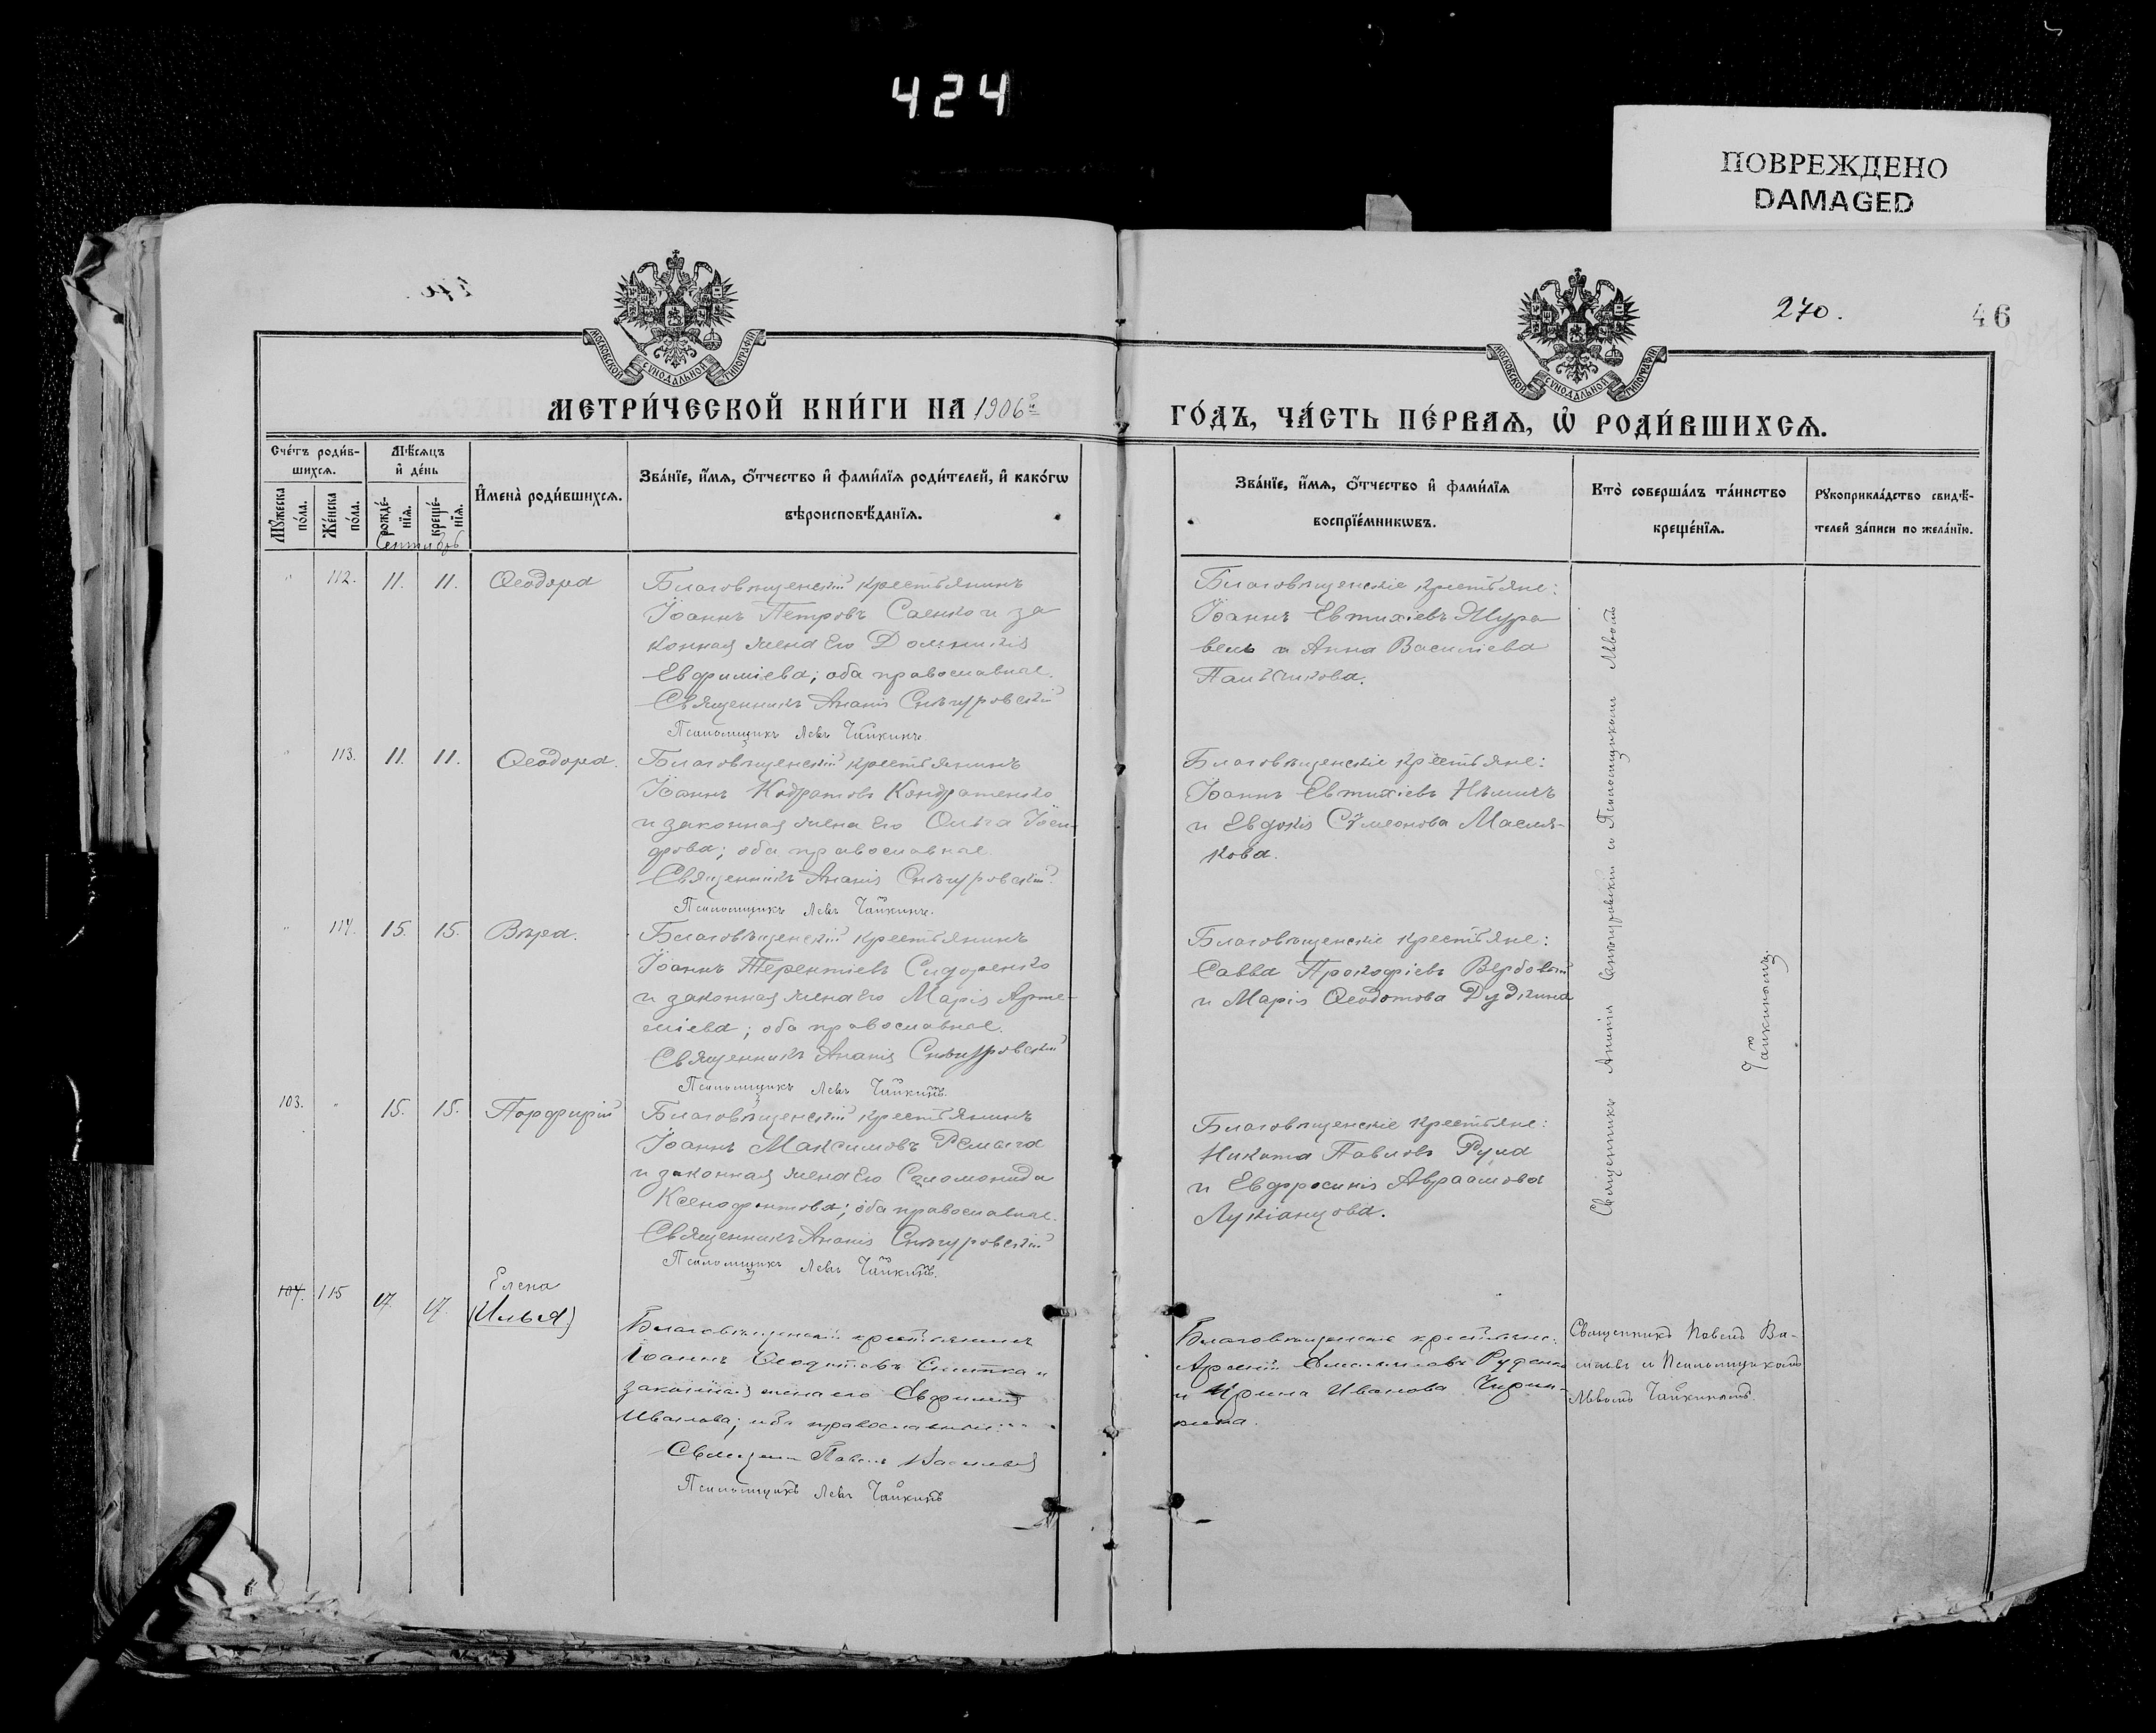 424
ПОВРЕЖДЕНО
DAMAGED
270.
46
МОСКОВСКОЙ СѴНОДАЛЬНОЙ ТИПОГРАФІИ
МОСКОВСКОЙ СѴНОДАЛЬНОЙ ТИПОГРАФІИ
МЕТРИ́ЧЕСКОЙ КНИ́ГИ НА 1906й
ГО́ДЪ, ЧА́СТЬ ПЕ́РВАѦ, Ѽ РОДИ́ВШИХСѦ.
Сче́тъ роди́в-
шихсѧ.
Мѣ́сѧцъ
и҆ де́нь
Мꙋ́жеска
по́ла.
Же́нска
по́ла.
рожде́-
нїѧ.
креще́-
нїѧ.
И҆мена̀ роди́вшихсѧ.
Зва́нїе, и҆́мѧ, ѻ҆́тчество и҆ фами́лїѧ роди́телей, и҆ како́гѡ
вѣроисповѣ́данїѧ.
Зва́нїе, и҆́мѧ, ѻ҆́тчество и҆ фами́лїѧ
воспрїе́мникѡвъ.
Кто̀ соверша́лъ та́инство
креще́нїѧ.
Рꙋкоприкла́дство свидѣ́-
телей за́писи по жела́нїю.
Сентябрь
" 112. 11. 11. Ѳеодора
Благовѣщенскій крестьянинъ
Іоаннъ Петровъ Саенко и за
конная жена его Домникія
Евфиміева; оба православные.
Священникъ Ананія Снѣгуровскій
Псаломщикъ Левъ Чайкинъ.
Благовѣщенскіе крестьяне:
Іоаннъ Евтихіевъ Жура
вель и Анна Василіева
" 113. 11. 11. Ѳеодора.
Благовѣщенскій крестьянинъ
Іоаннъ Кодратовъ Кондратенко
и законная жена его Ольга Іоси-
фова; оба православные.
Священникъ Ананія Снѣгуровскій.
Псаломщикъ Левъ Чайкинъ.
Благовѣщенскіе крестьяне:
Іоаннъ Евтихіевъ Нѣмичъ
и Евдокія Сѵмеонова Масля-
кова.
" 114. 15. 15. Вѣра.
Благовѣщенскій крестьянинъ
Іоаннъ Терентіевъ Сидоренко
и законная жена его Марія Арте-
міева; оба православные.
Священникъ Ананія Снѣгуровскій
Псаломщикъ Левъ Чайкинъ.
Благовѣщенскіе крестьяне:
Савва Прокофіевъ Вербовый
и Марія Ѳеодотова Дудкина
103. " 15. 15. Порфирій
Благовѣщенскій крестьянинъ
Іоаннъ Максимовъ Ремыга
и законная жена его Соломонида
Ксенофонтова; оба православные.
Священникъ Ананія Снѣгуровскій
Псаломщикъ Левъ Чайкинъ.
Благовѣщенскіе крестьяне:
Никита Павловъ Руда
и Евфросинія Авраамова
Лукіанцова.
Священникъ Ананія Снѣгуровскій и Псаломщикомъ Львомъ
Чайкинымъ
Елена
104. 115 17. 17. (Илья)
Благовѣщенскій крестьянинъ
Іоаннъ Ѳеодотовъ Снитка и
законная жена его Евфимія
Иванова; оба православные.
Священникъ Павелъ Васильевъ
Псаломщикъ Левъ Чайкинъ
Благовѣщенскіе крестьяне:
Руденко
и Ирина Иванова
Священникъ Павелъ Ва-
сильевъ и Псаломщикомъ
Львомъ Чайкинымъ.